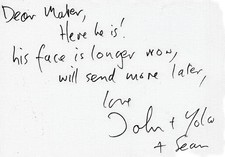 Dear Mater,
Here he is!
his face is longer now,
will send more later,
love
John + Yoko
+ Sean